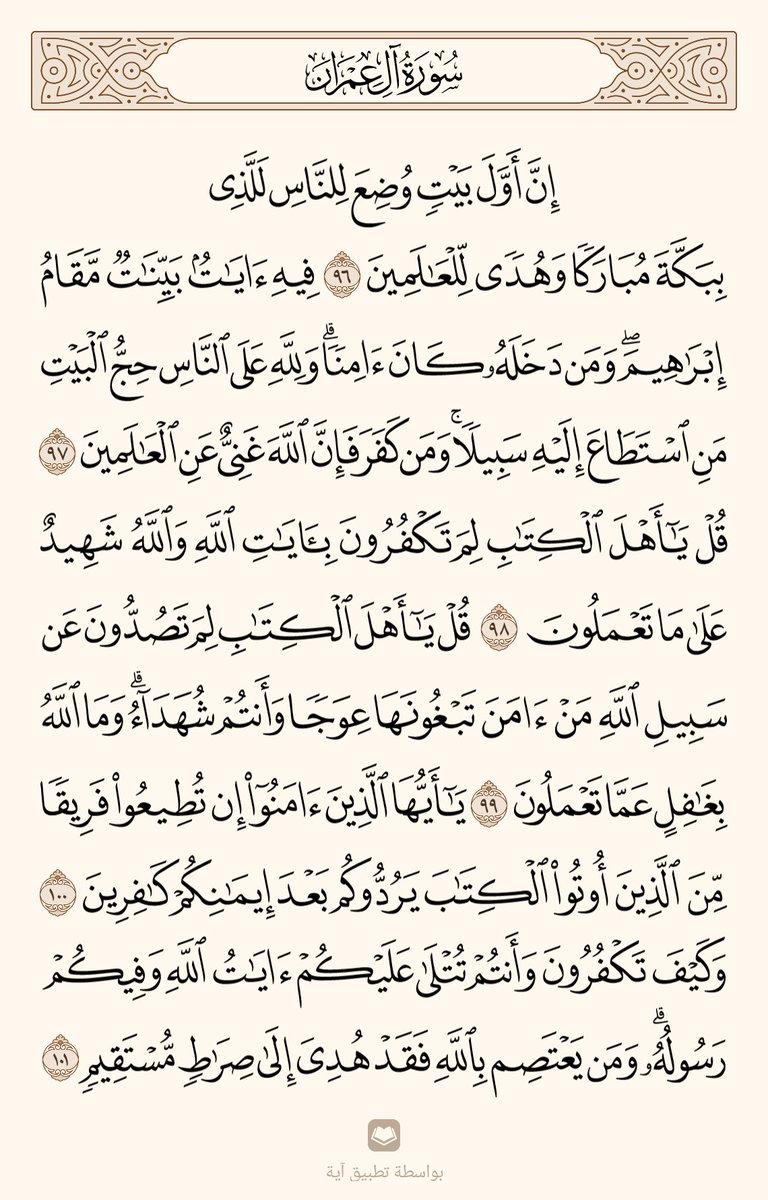 سُورَةُ آلِ عِمۡرَان
إِنَّ أَوَّلَ بَيۡتٖ وُضِعَ لِلنَّاسِ لَلَّذِي
بِبَكَّةَ مُبَارَكٗا وَهُدٗى لِّلۡعَٰلَمِينَ ٩٦ فِيهِ ءَايَٰتُۢ بَيِّنَٰتٞ مَّقَامُ
إِبۡرَٰهِيمَۖ وَمَن دَخَلَهُۥ كَانَ ءَامِنٗاۗ وَلِلَّهِ عَلَى ٱلنَّاسِ حِجُّ ٱلۡبَيۡتِ
مَنِ ٱسۡتَطَاعَ إِلَيۡهِ سَبِيلٗاۚ وَمَن كَفَرَ فَإِنَّ ٱللَّهَ غَنِيٌّ عَنِ ٱلۡعَٰلَمِينَ ٩٧
قُلۡ يَٰٓأَهۡلَ ٱلۡكِتَٰبِ لِمَ تَكۡفُرُونَ بِـَٔايَٰتِ ٱللَّهِ وَٱللَّهُ شَهِيدٌ
عَلَىٰ مَا تَعۡمَلُونَ ٩٨ قُلۡ يَٰٓأَهۡلَ ٱلۡكِتَٰبِ لِمَ تَصُدُّونَ عَن
سَبِيلِ ٱللَّهِ مَنۡ ءَامَنَ تَبۡغُونَهَا عِوَجٗا وَأَنتُمۡ شُهَدَآءُۗ وَمَا ٱللَّهُ
بِغَٰفِلٍ عَمَّا تَعۡمَلُونَ ٩٩ يَٰٓأَيُّهَا ٱلَّذِينَ ءَامَنُوٓاْ إِن تُطِيعُواْ فَرِيقٗا
مِّنَ ٱلَّذِينَ أُوتُواْ ٱلۡكِتَٰبَ يَرُدُّوكُم بَعۡدَ إِيمَٰنِكُمۡ كَٰفِرِينَ ١٠٠
وَكَيۡفَ تَكۡفُرُونَ وَأَنتُمۡ تُتۡلَىٰ عَلَيۡكُمۡ ءَايَٰتُ ٱللَّهِ وَفِيكُمۡ
رَسُولُهُۥۗ وَمَن يَعۡتَصِم بِٱللَّهِ فَقَدۡ هُدِيَ إِلَىٰ صِرَٰطٖ مُّسۡتَقِيمٖ ١٠١
بواسطة تطبيق آية